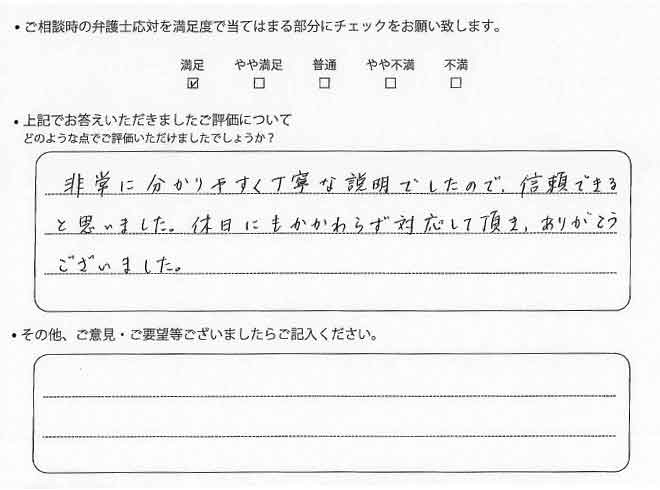 ・ご相談時の弁護士応対を満足度で当てはまる部分にチェックをお願い致します。
満足 やや満足 普通 やや不満 不満
☑ □ □ □ □
・上記でお答えいただきましたご評価について
どのような点でご評価いただけましたでしょうか？
非常に分かりやすく丁寧な説明でしたので、信頼できる
と思いました。休日にもかかわらず対応して頂き、ありがとう
ございました。
・その他、ご意見・ご要望等ございましたらご記入ください。